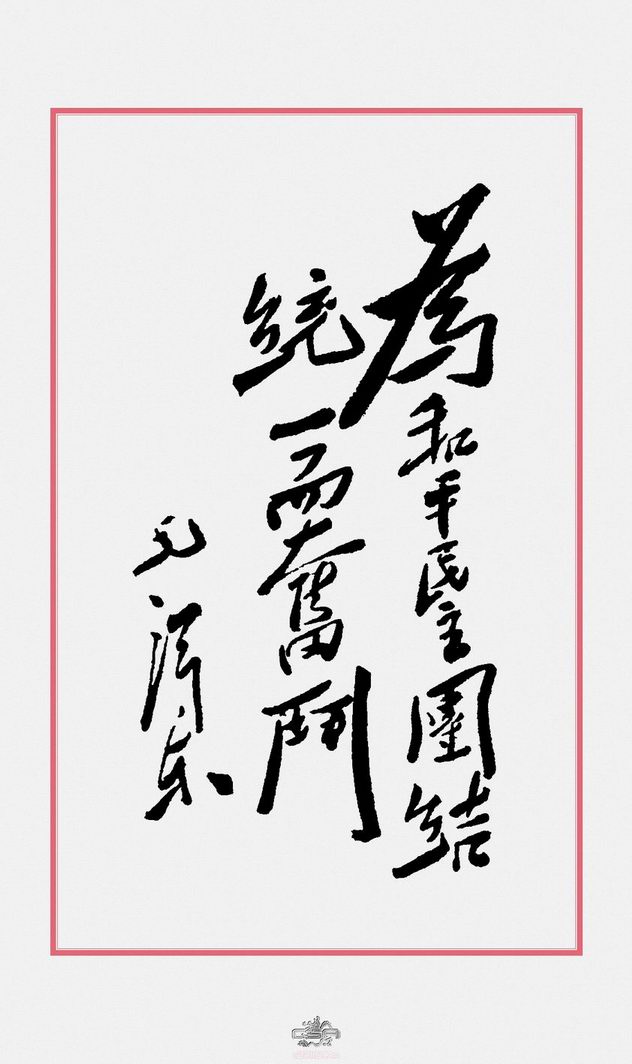 為和平民主團結
統一而奮鬥
毛澤東